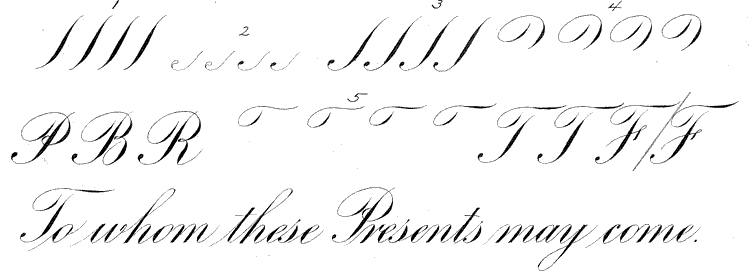 1 2 3 4
5
P B R T T F / F
To whom these Presents may come.